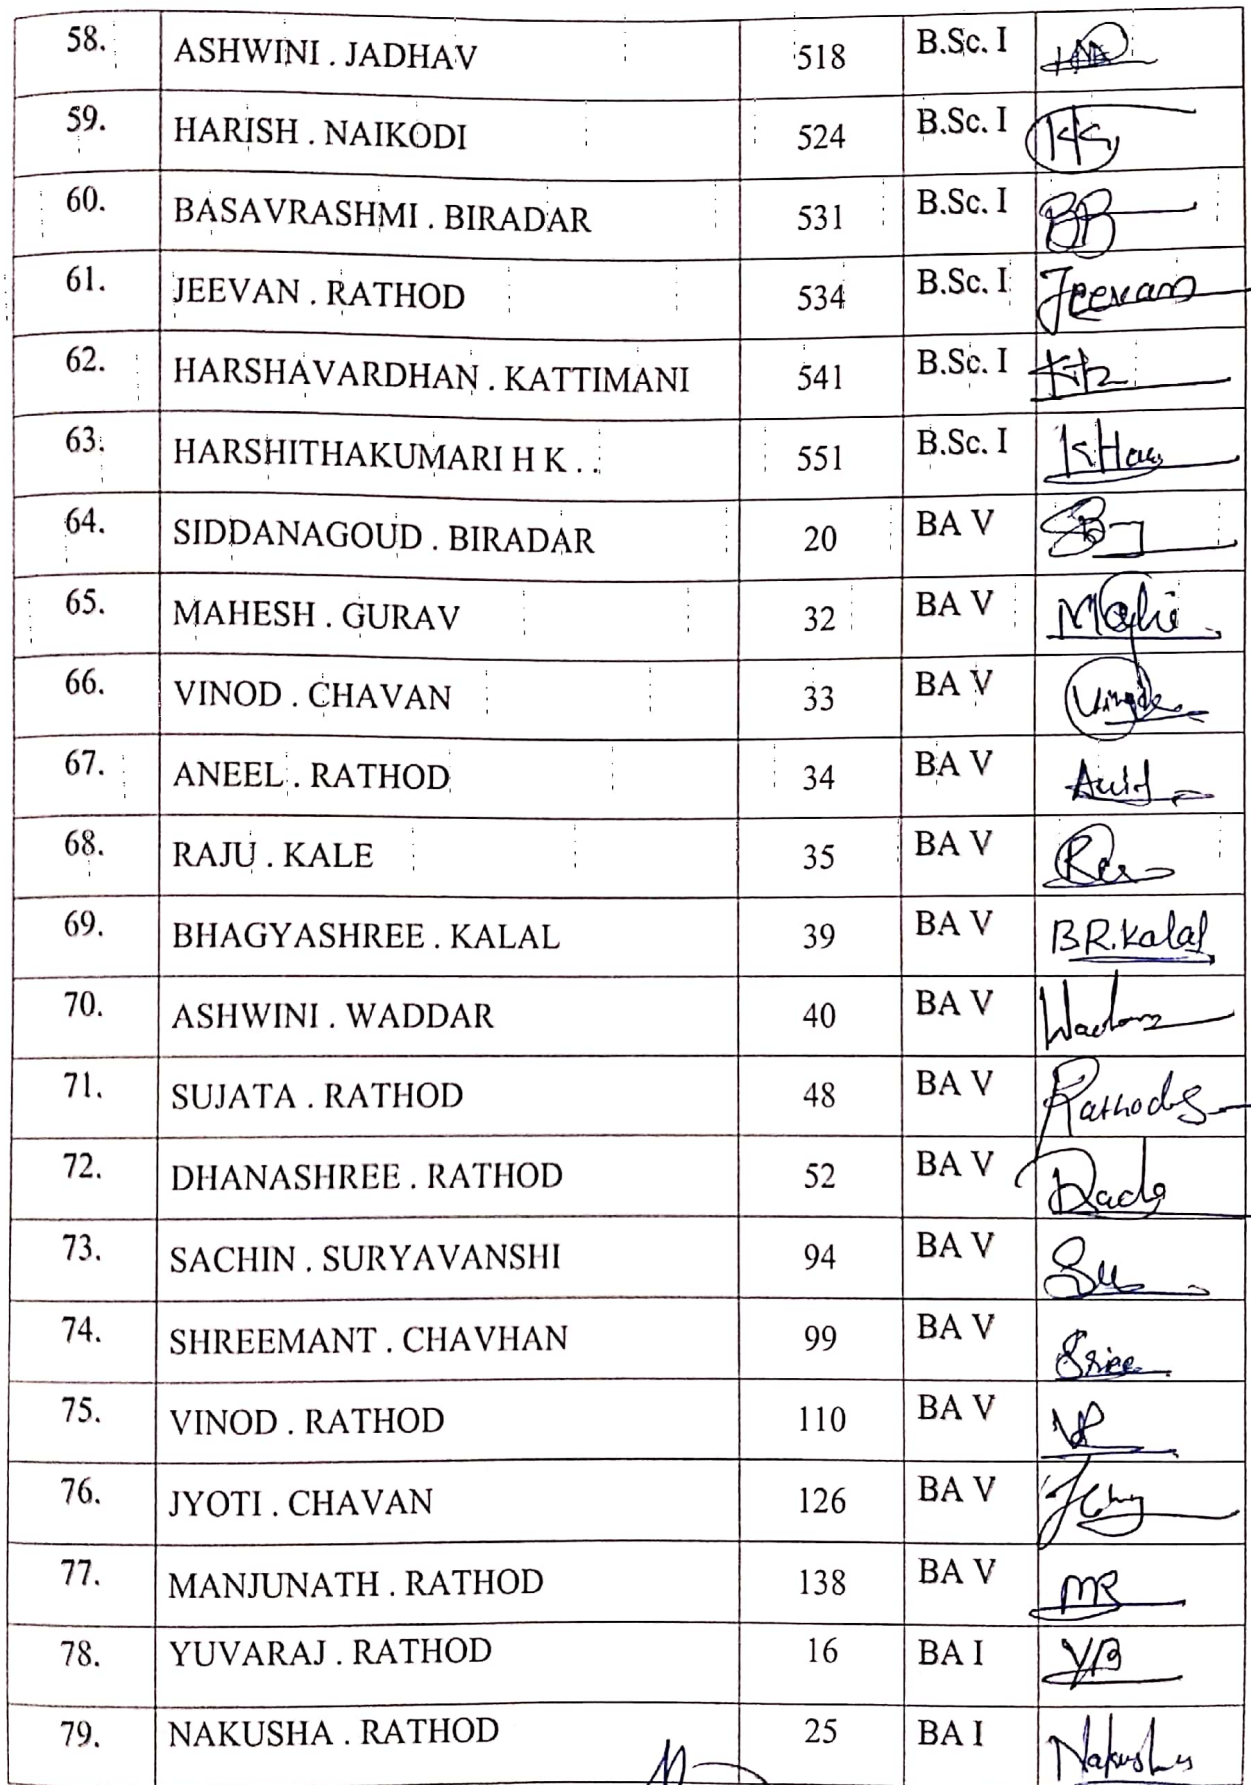 58. ASHWINI . JADHAV 518 B.Sc. I
59. HARISH . NAIKODI 524 B.Sc. I
60. BASAVRASHMI . BIRADAR 531 B.Sc. I BB
61. JEEVAN . RATHOD 534 B.Sc. I Jeevan
62. HARSHAVARDHAN . KATTIMANI 541 B.Sc. I
63. HARSHITHAKUMARI H K . . 551 B.Sc. I
64. SIDDANAGOUD . BIRADAR 20 BA V
65. MAHESH . GURAV 32 BA V
66. VINOD . CHAVAN 33 BA V
67. ANEEL . RATHOD 34 BA V
68. RAJU . KALE 35 BA V
69. BHAGYASHREE . KALAL 39 BA V B R. Kalal
70. ASHWINI . WADDAR 40 BA V
71. SUJATA . RATHOD 48 BA V
72. DHANASHREE . RATHOD 52 BA V
73. SACHIN . SURYAVANSHI 94 BA V
74. SHREEMANT . CHAVHAN 99 BA V
75. VINOD . RATHOD 110 BA V VR
76. JYOTI . CHAVAN 126 BA V
77. MANJUNATH . RATHOD 138 BA V MR
78. YUVARAJ . RATHOD 16 BA I
79. NAKUSHA . RATHOD 25 BA I